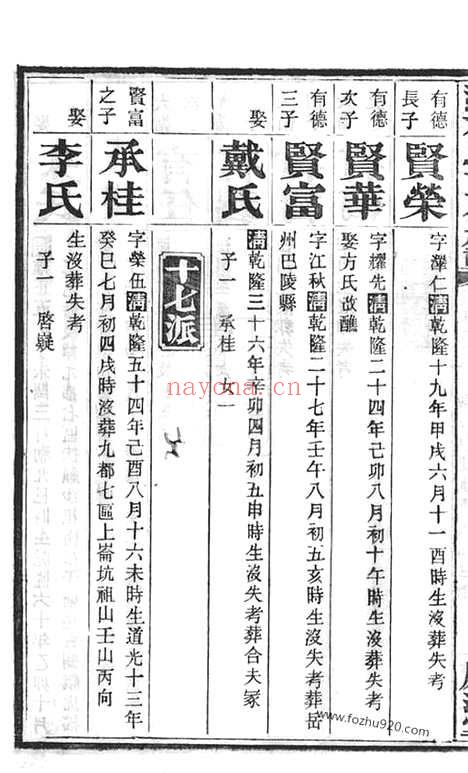 有德
長子
賢榮
字澤仁清乾隆十九年甲戌六月十一酉時生沒失考
有德
次子
賢華
字耀先清乾隆二十四年己卯八月初十午時生沒葬失考
娶方氏改醮
有德
三子
賢富
字江秋清乾隆二十七年壬午八月初五亥時生沒失考葬岳
州巴陵縣
娶
戴氏
清乾隆三十六年辛卯四月初五申時生沒失考葬合夫冢
子一 承桂 女一
十七派
賢富
之子
承桂
字榮伍清乾隆五十四年己酉八月十六未時生道光十三年
癸巳七月初四戌時沒葬九都七區上崙坑祖山壬山丙向
娶
李氏
生沒葬失考
子一 啓嶷
nayona.cn
www.fozhu920.com